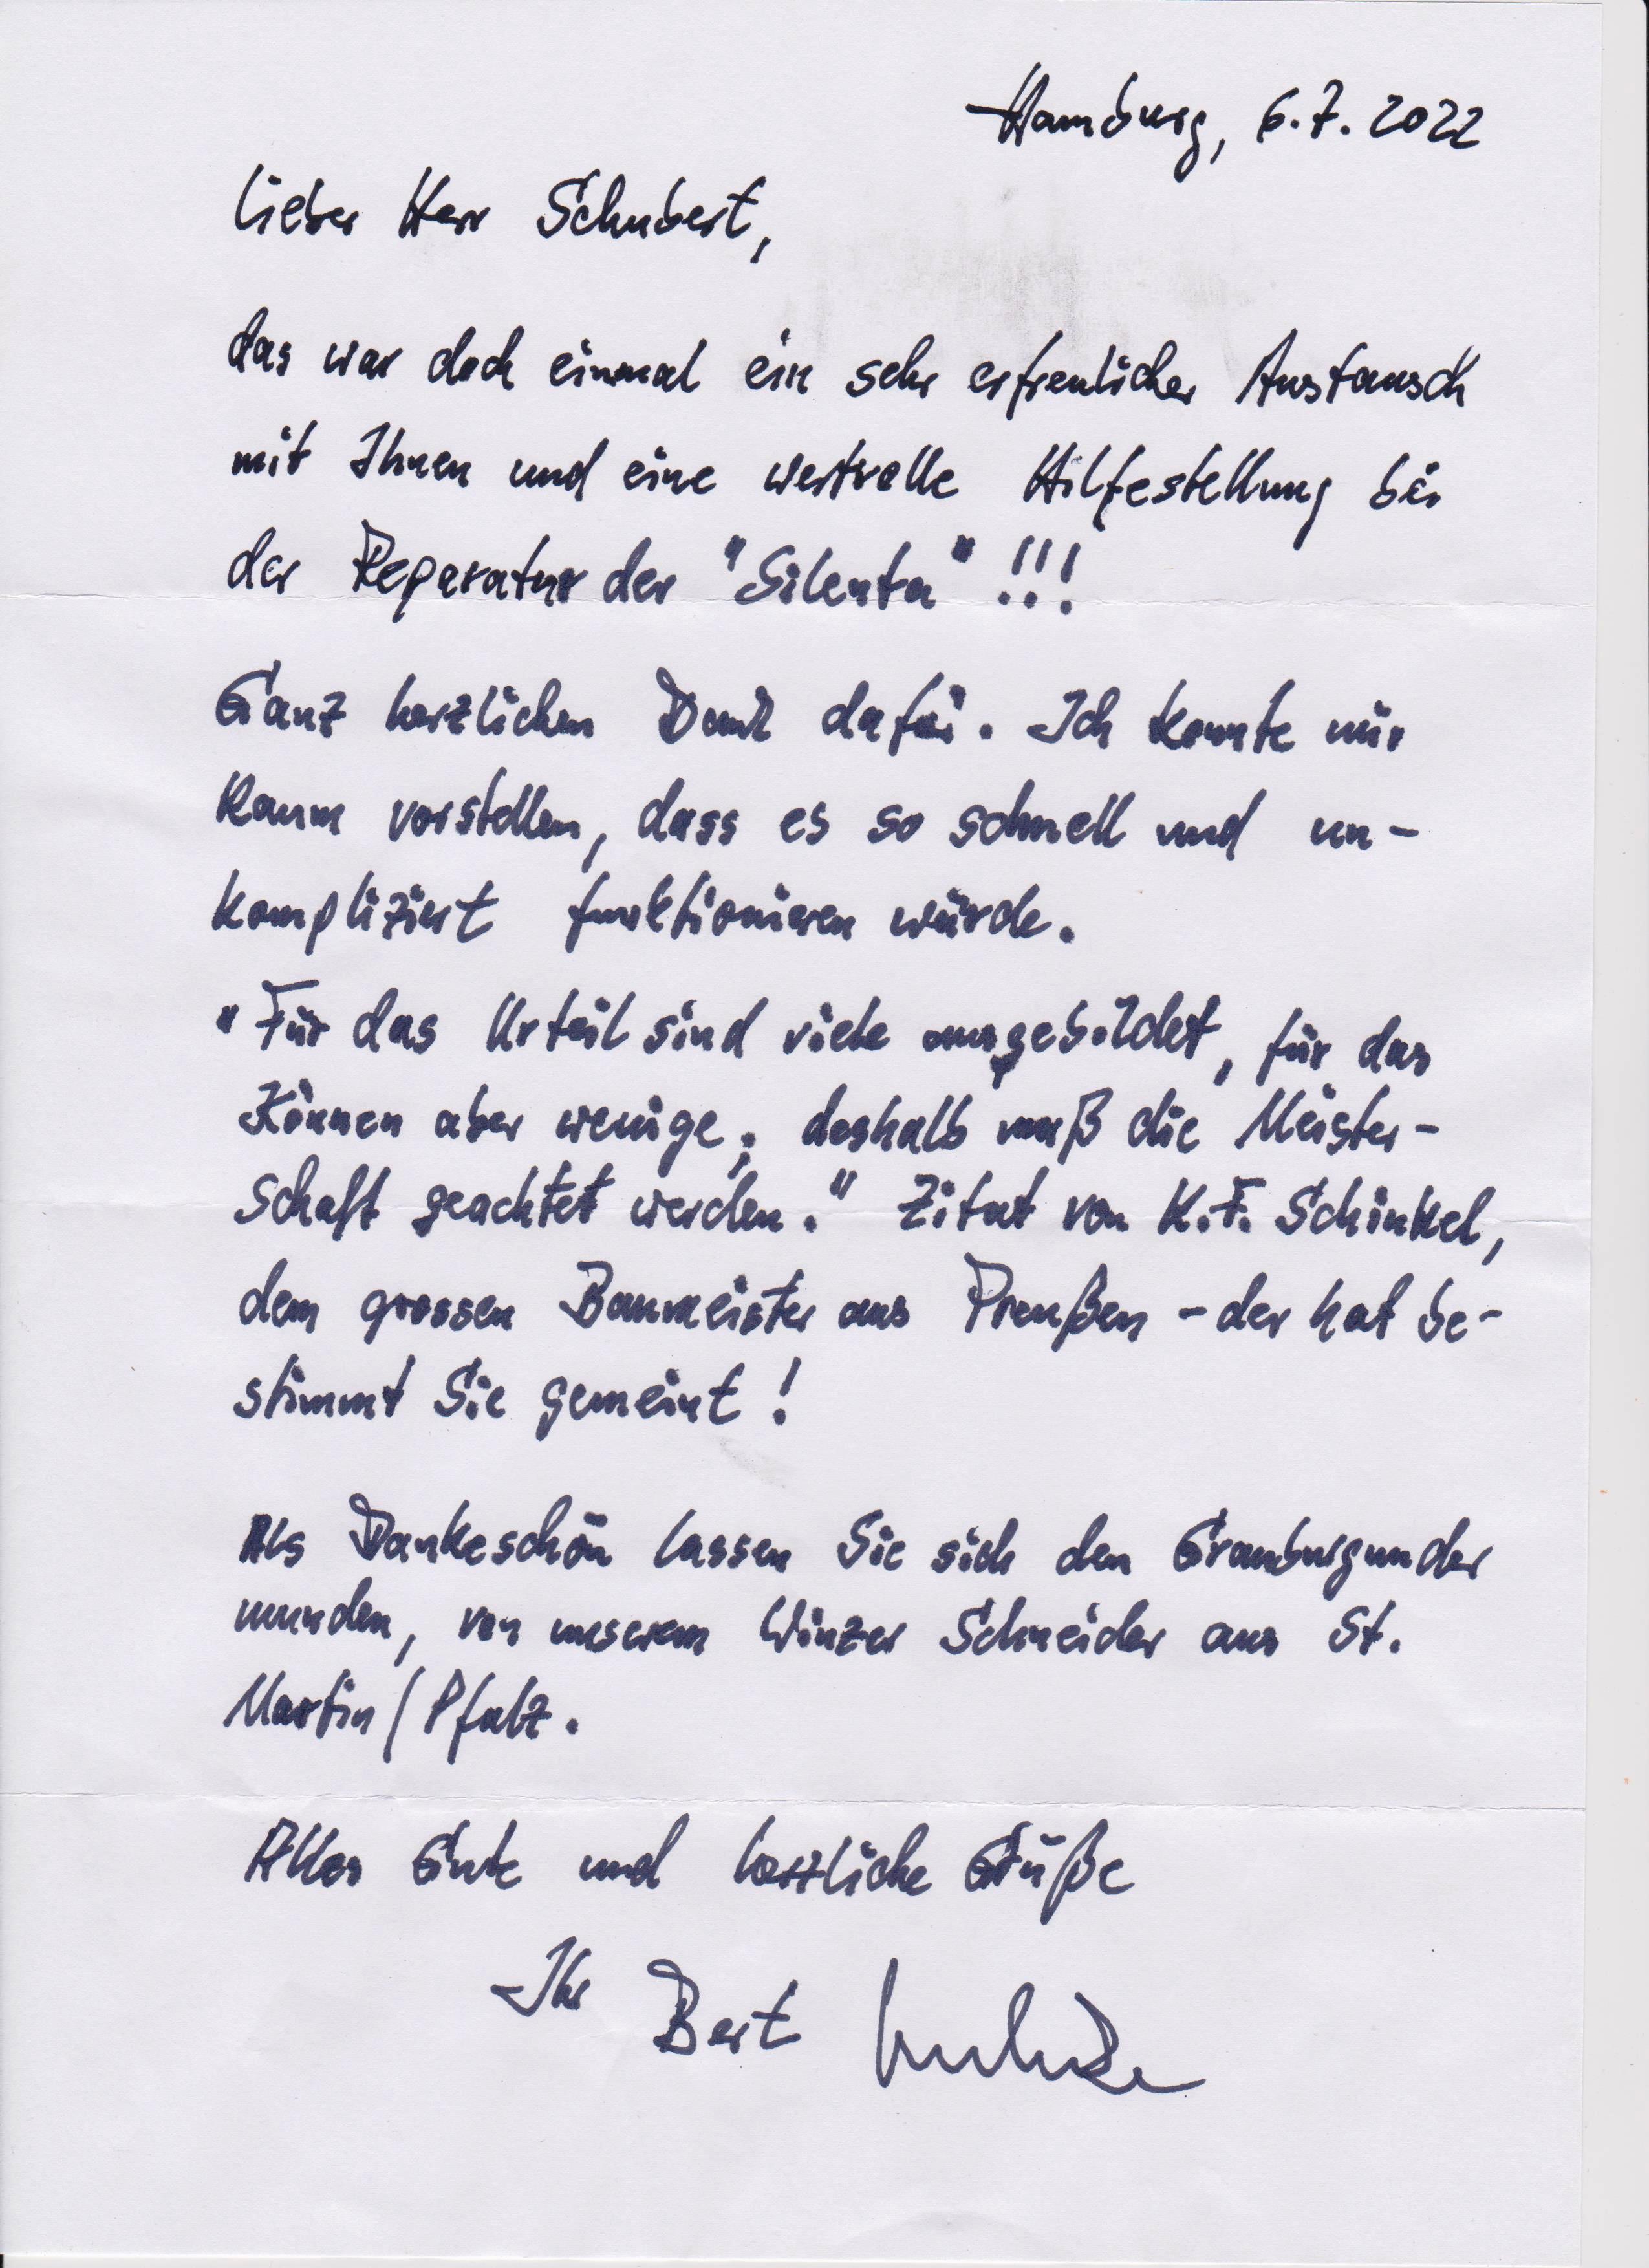 Hamburg, 6.7.2022
Lieber Herr Schubert,
das war doch einmal ein sehr erfreulicher Austausch
mit Ihnen und eine wertvolle Hilfestellung bei
der Reparatur der "Silenta" !!!
Ganz herzlichen Dank dafür. Ich konnte mir
kaum vorstellen, dass es so schnell und un-
kompliziert funktionieren würde.
"Für das Urteil sind viele ausgebildet, für das
Können aber wenige; deshalb muß die Meister-
schaft geachtet werden." Zitat von K.F. Schinkel,
dem grossen Baumeister aus Preußen - der hat be-
stimmt Sie gemeint!
Als Dankeschön lassen Sie sich den Grauburgunder
munden, von unserem Winzer Schneider aus St.
Martin/Pfalz.
Alles Gute und herzliche Grüße
Ihr Bert